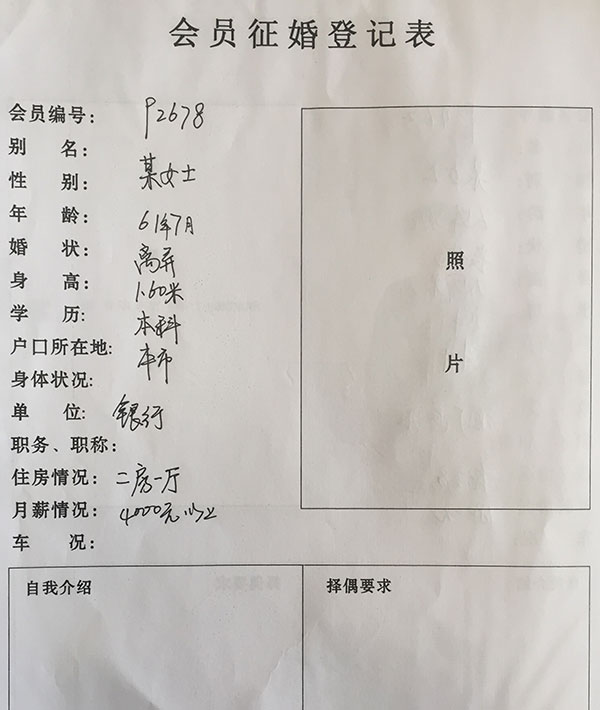 会员征婚登记表
会员编号： P2678
别 名：
性 别： 某女士
年 龄： 61年7月
婚 状： 离异
身 高： 1.60米
学 历： 本科
户口所在地: 本市
身体状况:
单 位: 银行
职务、职称：
住房情况： 二房一厅
月薪情况： 4000元以上
车 况：
照
片
自我介绍
择偶要求